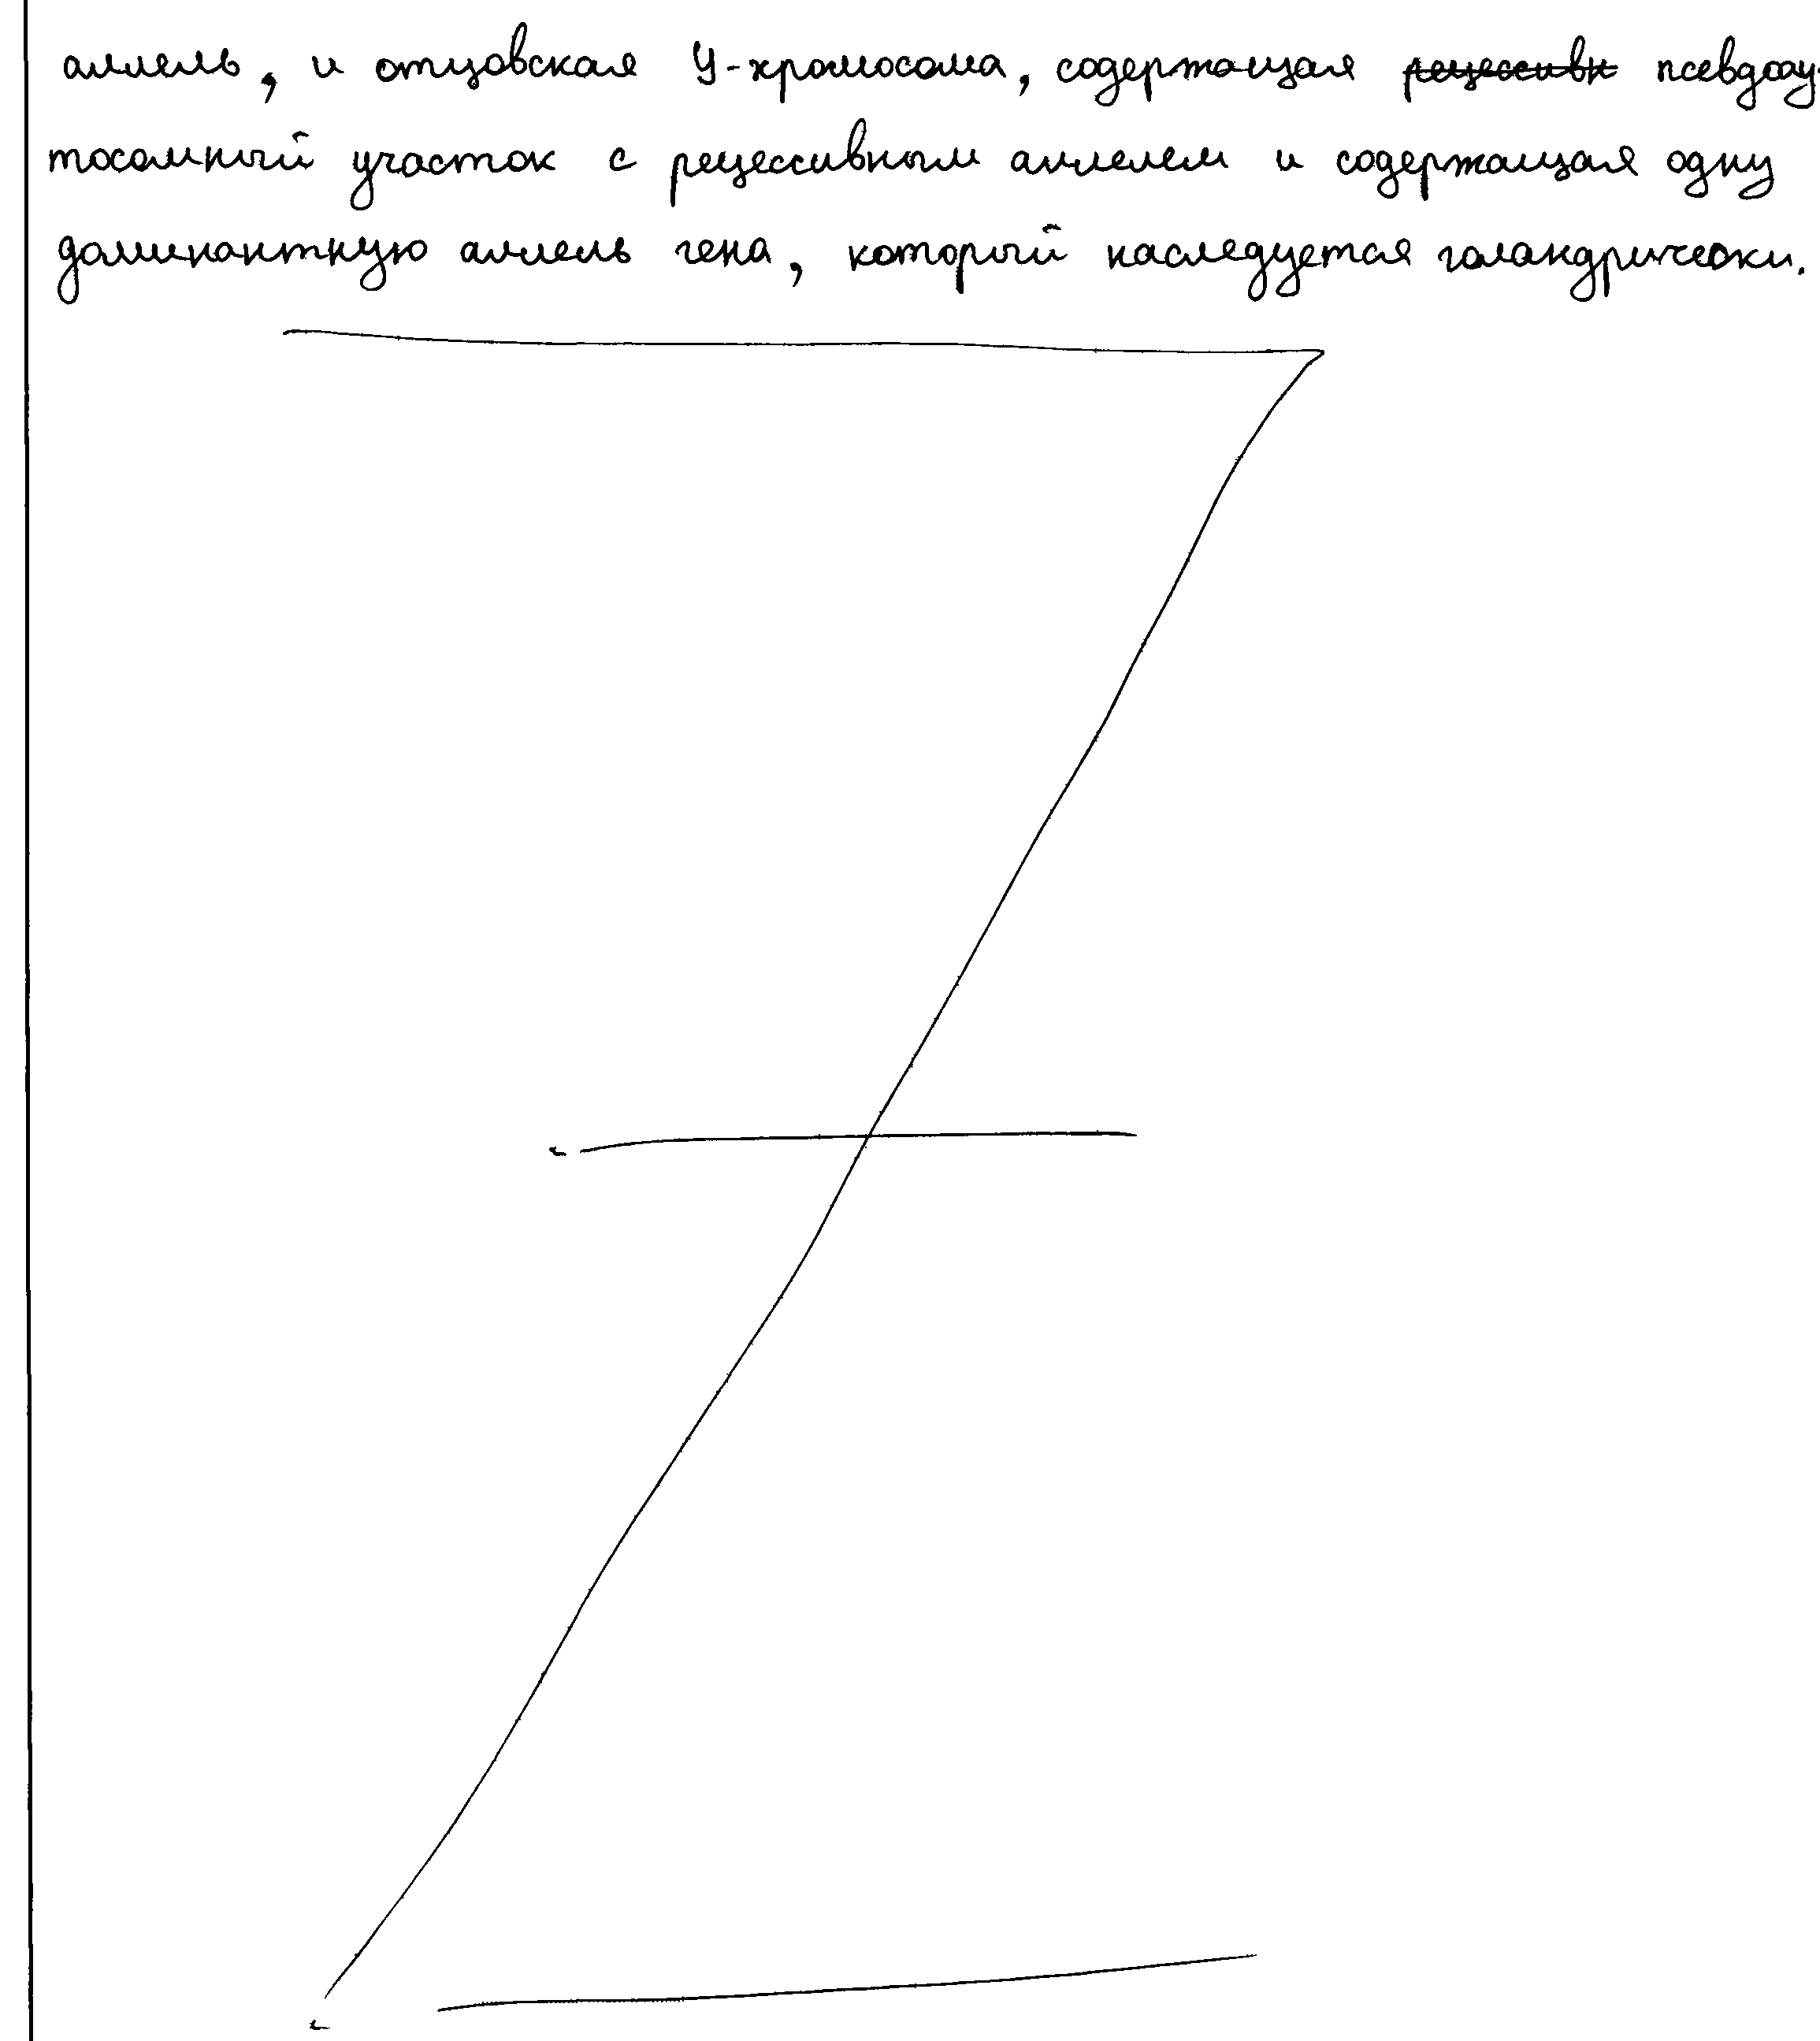 аллель, и отцовская У-хромосома, содержащая рецессивн псевдоау-
тосомный участок с рецессивным аллелем и содержащая одну
доминантную аллель гена, который наследуется голандрически.